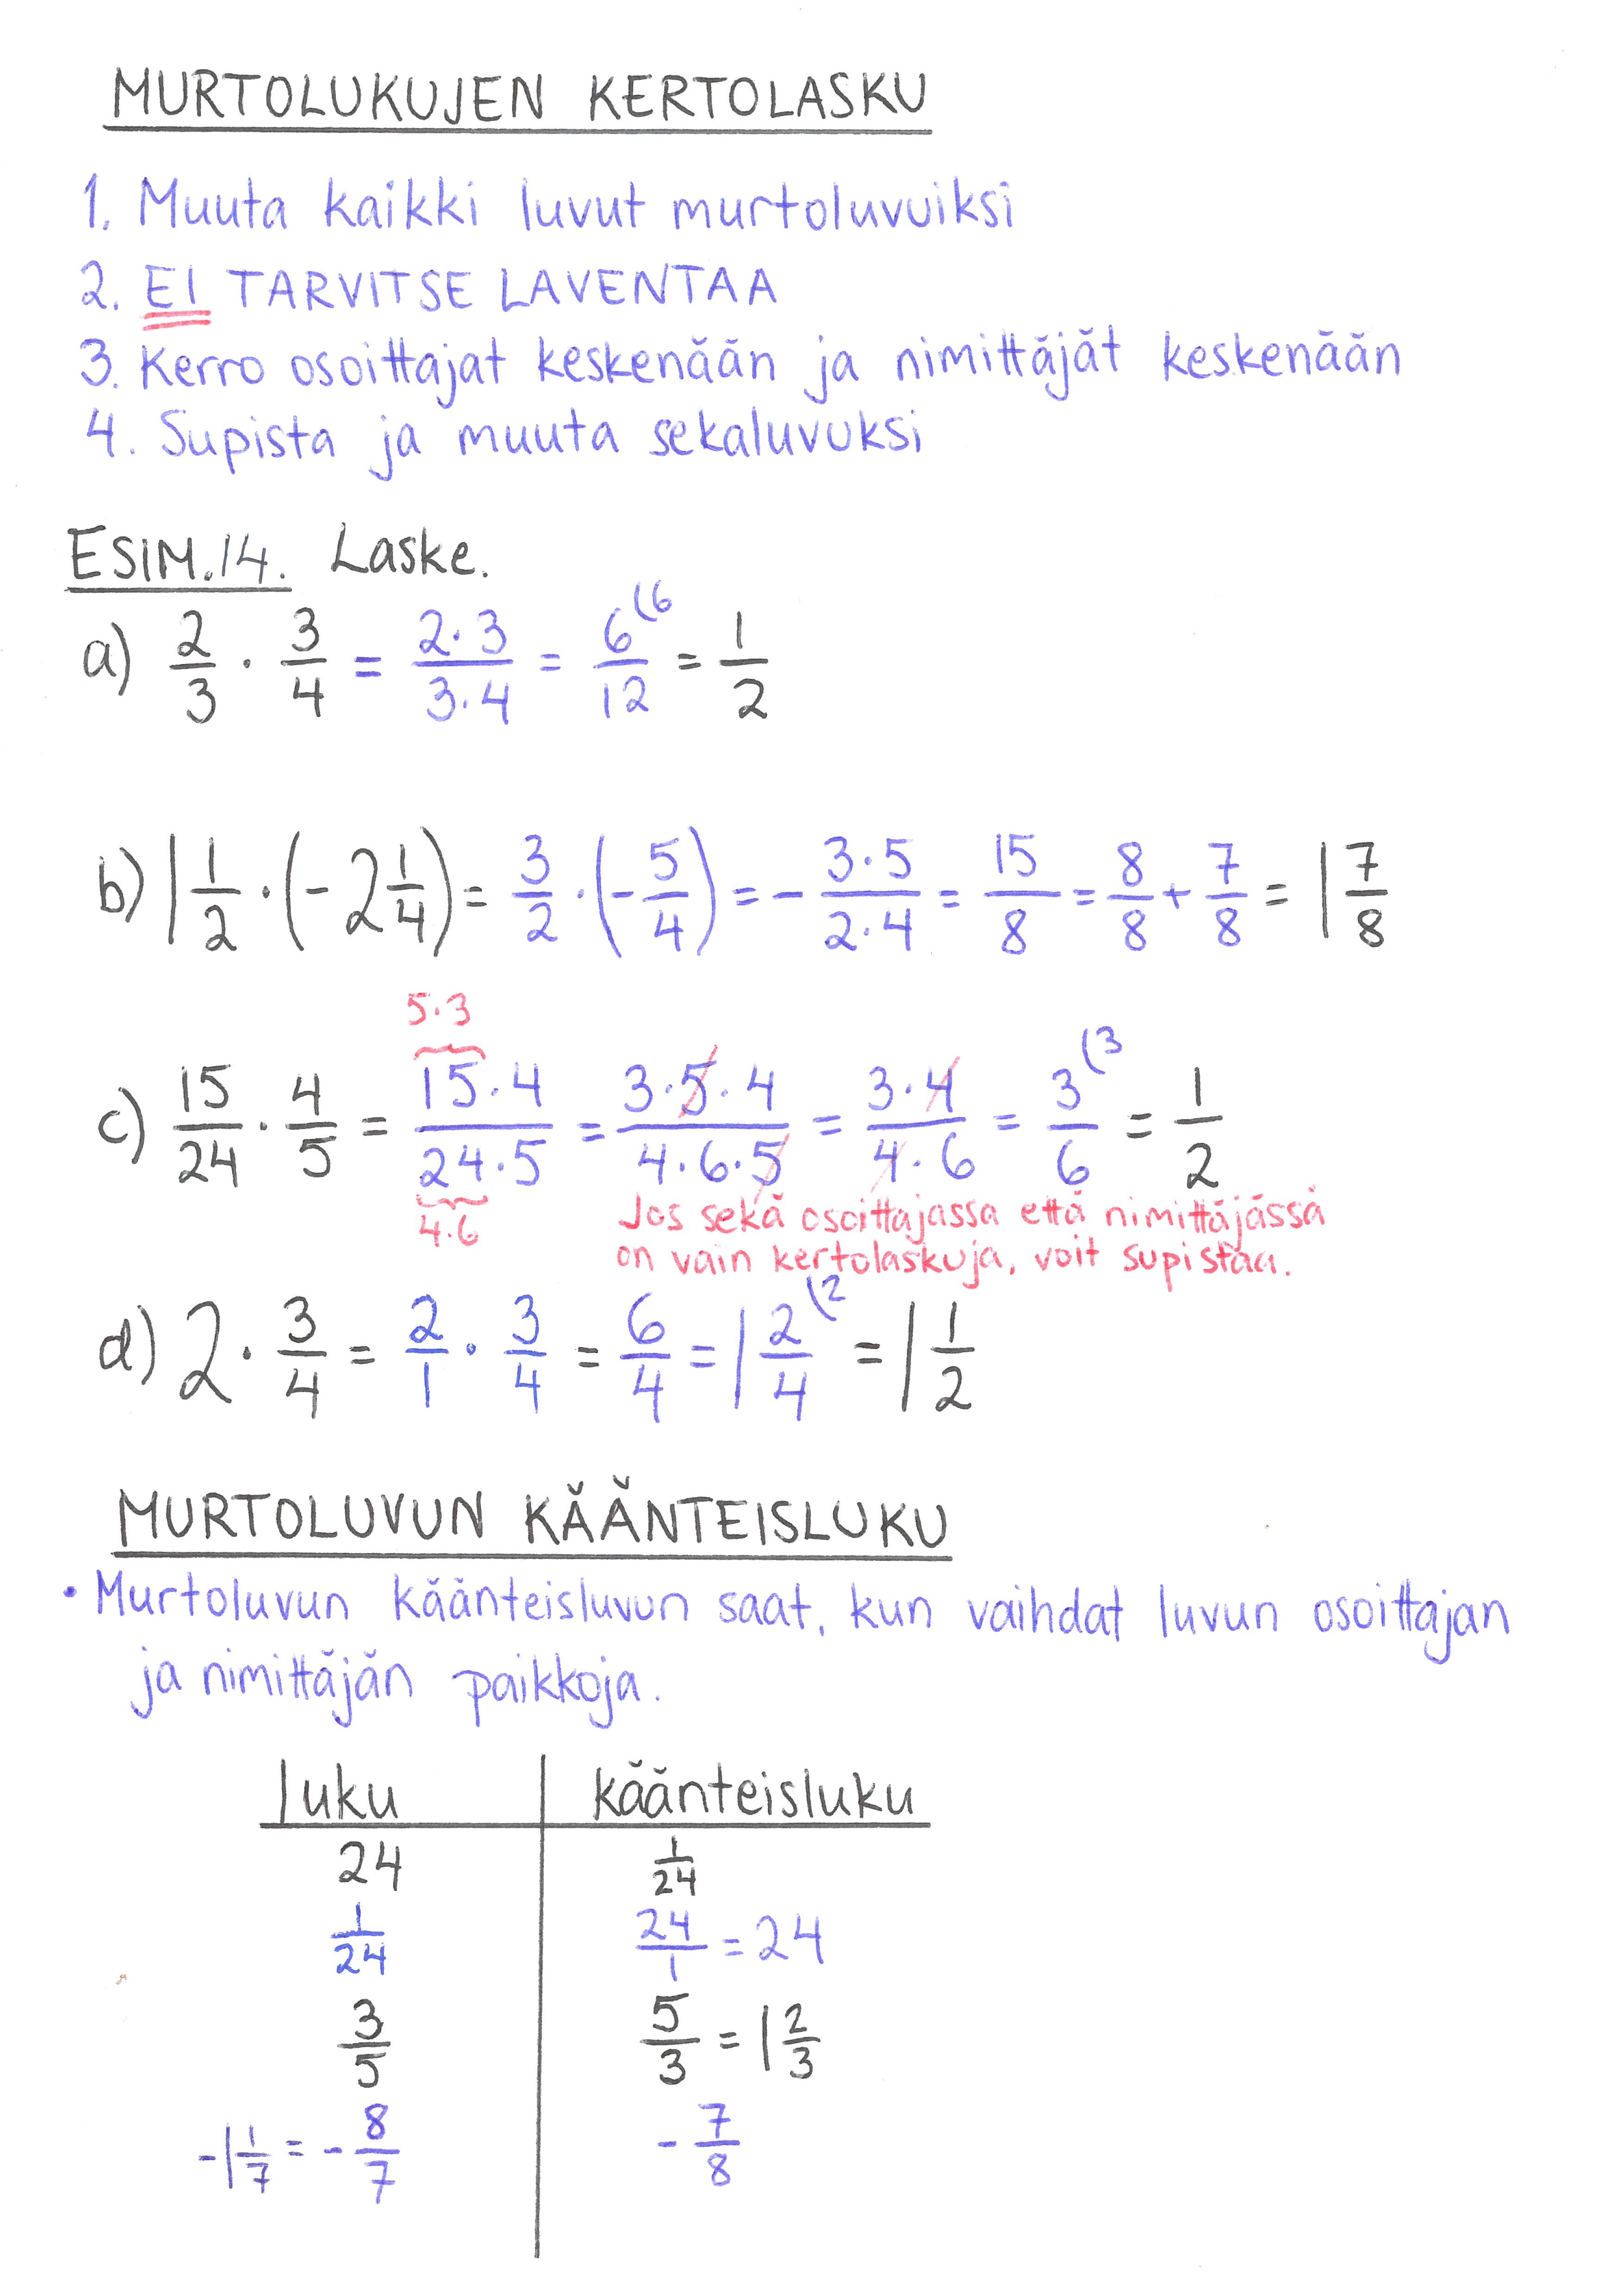 MURTOLUKUJEN KERTOLASKU
1. Muuta kaikki luvut murtoluvuiksi
2. EI TARVITSE LAVENTAA
3. Kerro osoittajat keskenään ja nimittäjät keskenään
4. Supista ja muuta sekaluvuksi
ESIM.14. Laske.
a) 2/3 · 3/4 = 2·3/3·4 = 6/12 (6 = 1/2
b) 1 1/2 · (- 2 1/4) = 3/2 · (- 5/4) = - 3·5/2·4 = 15/8 = 8/8 + 7/8 = 1 7/8
5·3
c) 15/24 · 4/5 = 15·4/24·5 = 3·5·4/4·6·5 = 3·4/4·6 = 3/6 (3 = 1/2
4·6
Jos sekä osoittajassa että nimittäjässä
on vain kertolaskuja, voit supistaa.
d) 2 · 3/4 = 2/1 · 3/4 = 6/4 = 1 2/4 (2 = 1 1/2
MURTOLUVUN KÄÄNTEISLUKU
• Murtoluvun käänteisluvun saat, kun vaihdat luvun osoittajan
ja nimittäjän paikkoja.
luku käänteisluku
24 1/24
1/24 24/1 = 24
3/5 5/3 = 1 2/3
-1 1/7 = - 8/7 - 7/8